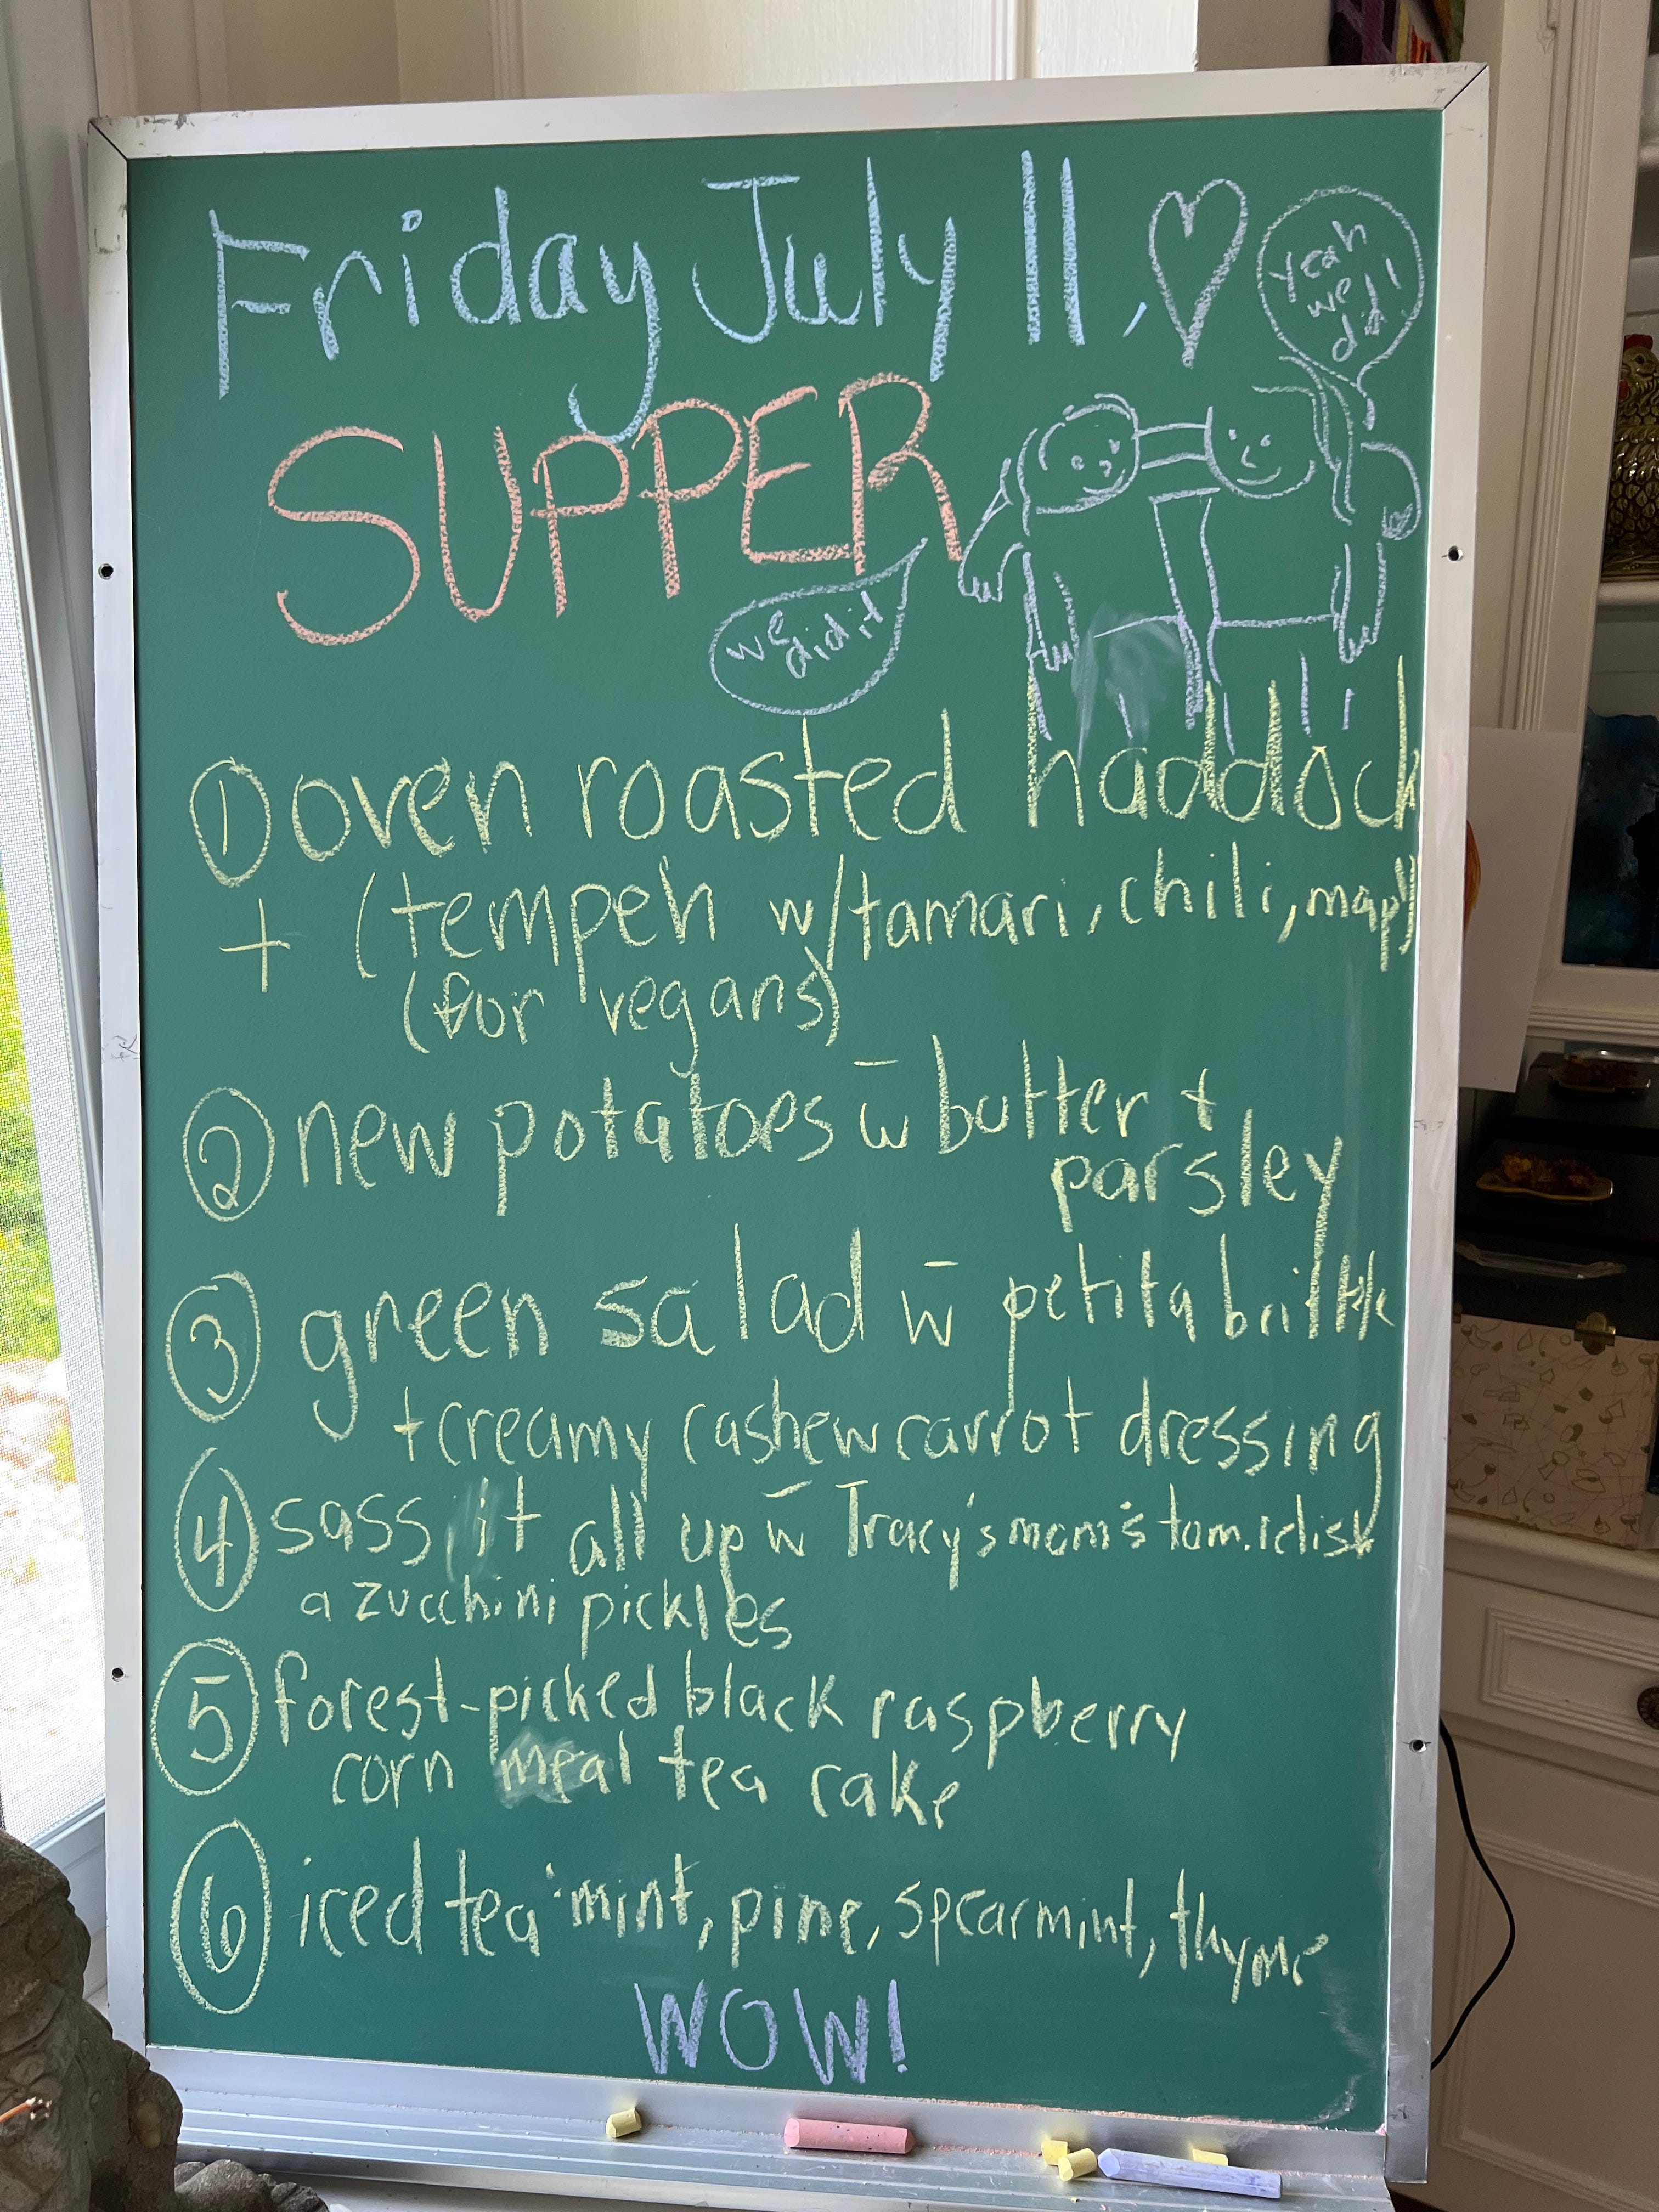 Friday July 11,
Yeah
we
did!
SUPPER
we
did it
① oven roasted haddock
+ (tempeh w/tamari, chili, mapl)
(for vegans)
② new potatoes w̄ butter +
parsley
③ green salad w̄ petita brittle
+ creamy cashew carrot dressing
④ sass it all up w̄ Tracy's mom's tom. relish
a zucchini pickles
⑤ forest-picked black raspberry
corn meal tea cake
⑥ iced tea mint, pine, spearmint, thyme
WOW!